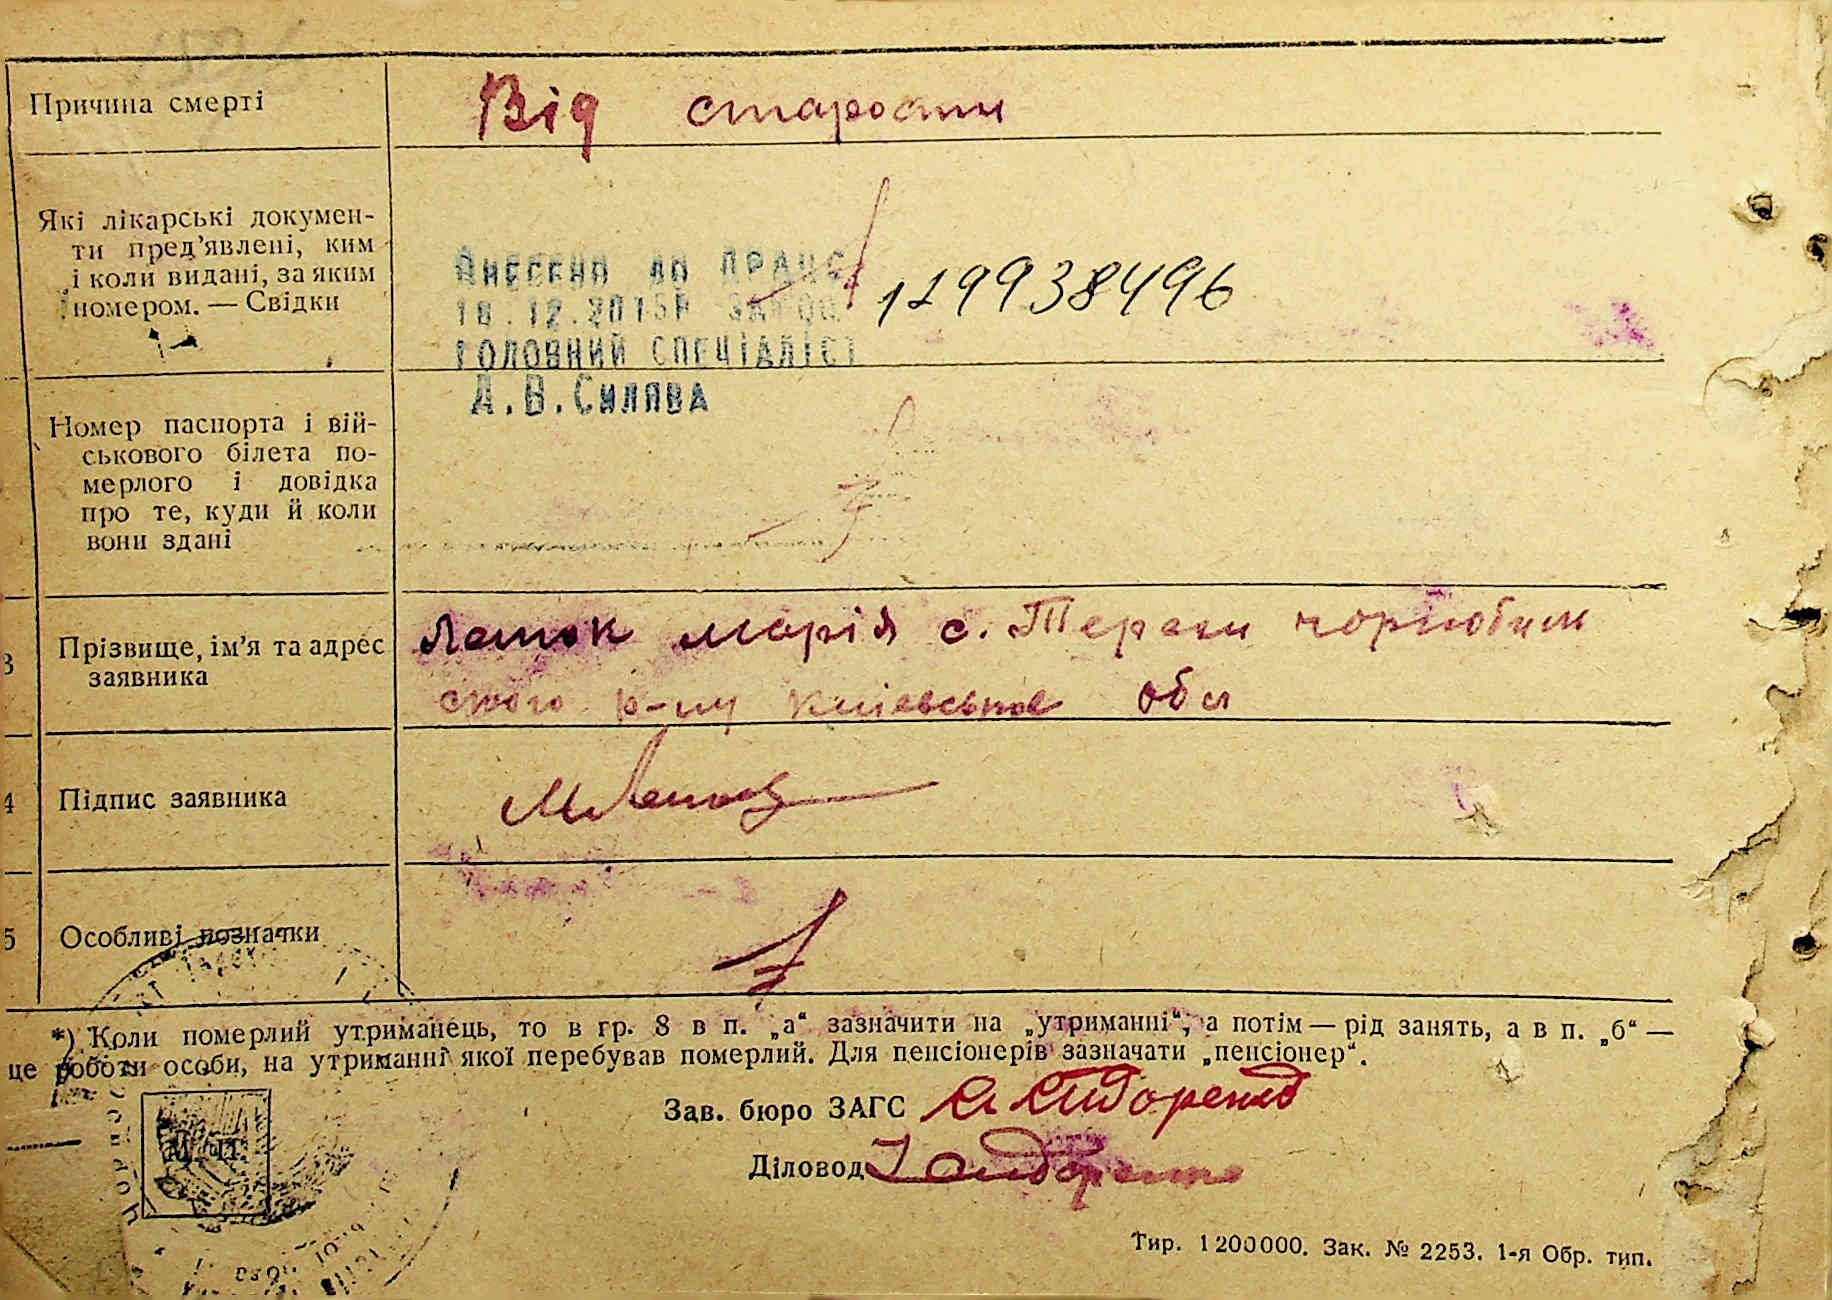 Причина смерті
Від старости
Які лікарські документи пред'явлені, ким
і коли видані, за яким
номером. — Свідки
Внесено до ДРАЦС
18.12.2015р
129938496
Головний спеціаліст
Д.В.Силява
Номер паспорта і вій-
ського білета по-
мерлого і довідка
про те, куди й коли
вони здані
3
Прізвище, ім'я та адрес
заявника
Марія с. Чорнобиль
ського р-ну Київської обл
4
Підпис заявника
5
Особливі позначки
*) Коли померлий утриманець, то в гр. 8 в п. „а“ зазначити на „утриманні“, а потім — рід занять, а в п. „б“ —
це роботи особи, на утриманні якої перебував померлий. Для пенсіонерів зазначати „пенсіонер“.
Зав. бюро ЗАГС
Діловод
Тир. 1200000. Зак. № 2253. 1-я Обр. тип.